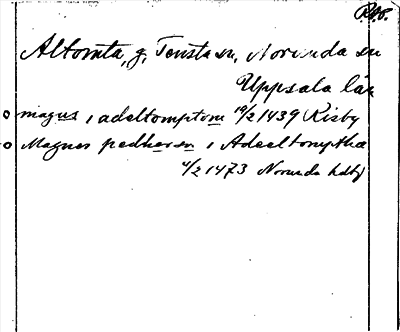 Altomta, g, Tensta sn, Norunda sn
Uppsala län
magns i adeltomptom 19/2 1439 Risby
Magnus pedhersen i Adeeltomptha
4/2 1473 Norunda hdbj